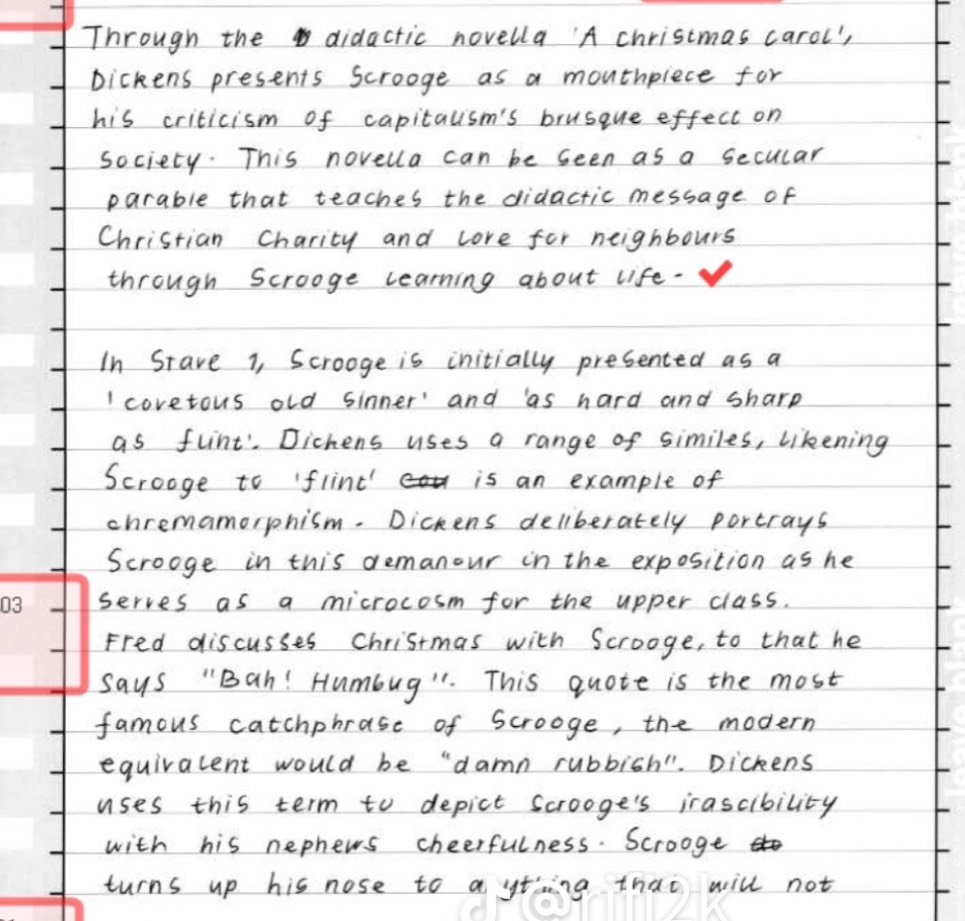 Through the didactic novella 'A Christmas Carol',
Dickens presents Scrooge as a mouthpiece for
his criticism of capitalism's brusque effect on
society. This novella can be seen as a secular
parable that teaches the didactic message of
Christian Charity and love for neighbours
through Scrooge learning about life.
In Stave 1, Scrooge is initially presented as a
'covetous old sinner' and 'as hard and sharp
as flint'. Dickens uses a range of similes, likening
Scrooge to 'flint' is an example of
chremamorphism. Dickens deliberately portrays
Scrooge in this demanour in the exposition as he
03 serves as a microcosm for the upper class.
Fred discusses Christmas with Scrooge, to that he
says "Bah! Humbug". This quote is the most
famous catchphrase of Scrooge, the modern
equivalent would be "damn rubbish". Dickens
uses this term to depict Scrooge's irascibility
with his nephews cheerfulness. Scrooge
turns up his nose to anything that will not
@rifi2k
leave blank
leave blank